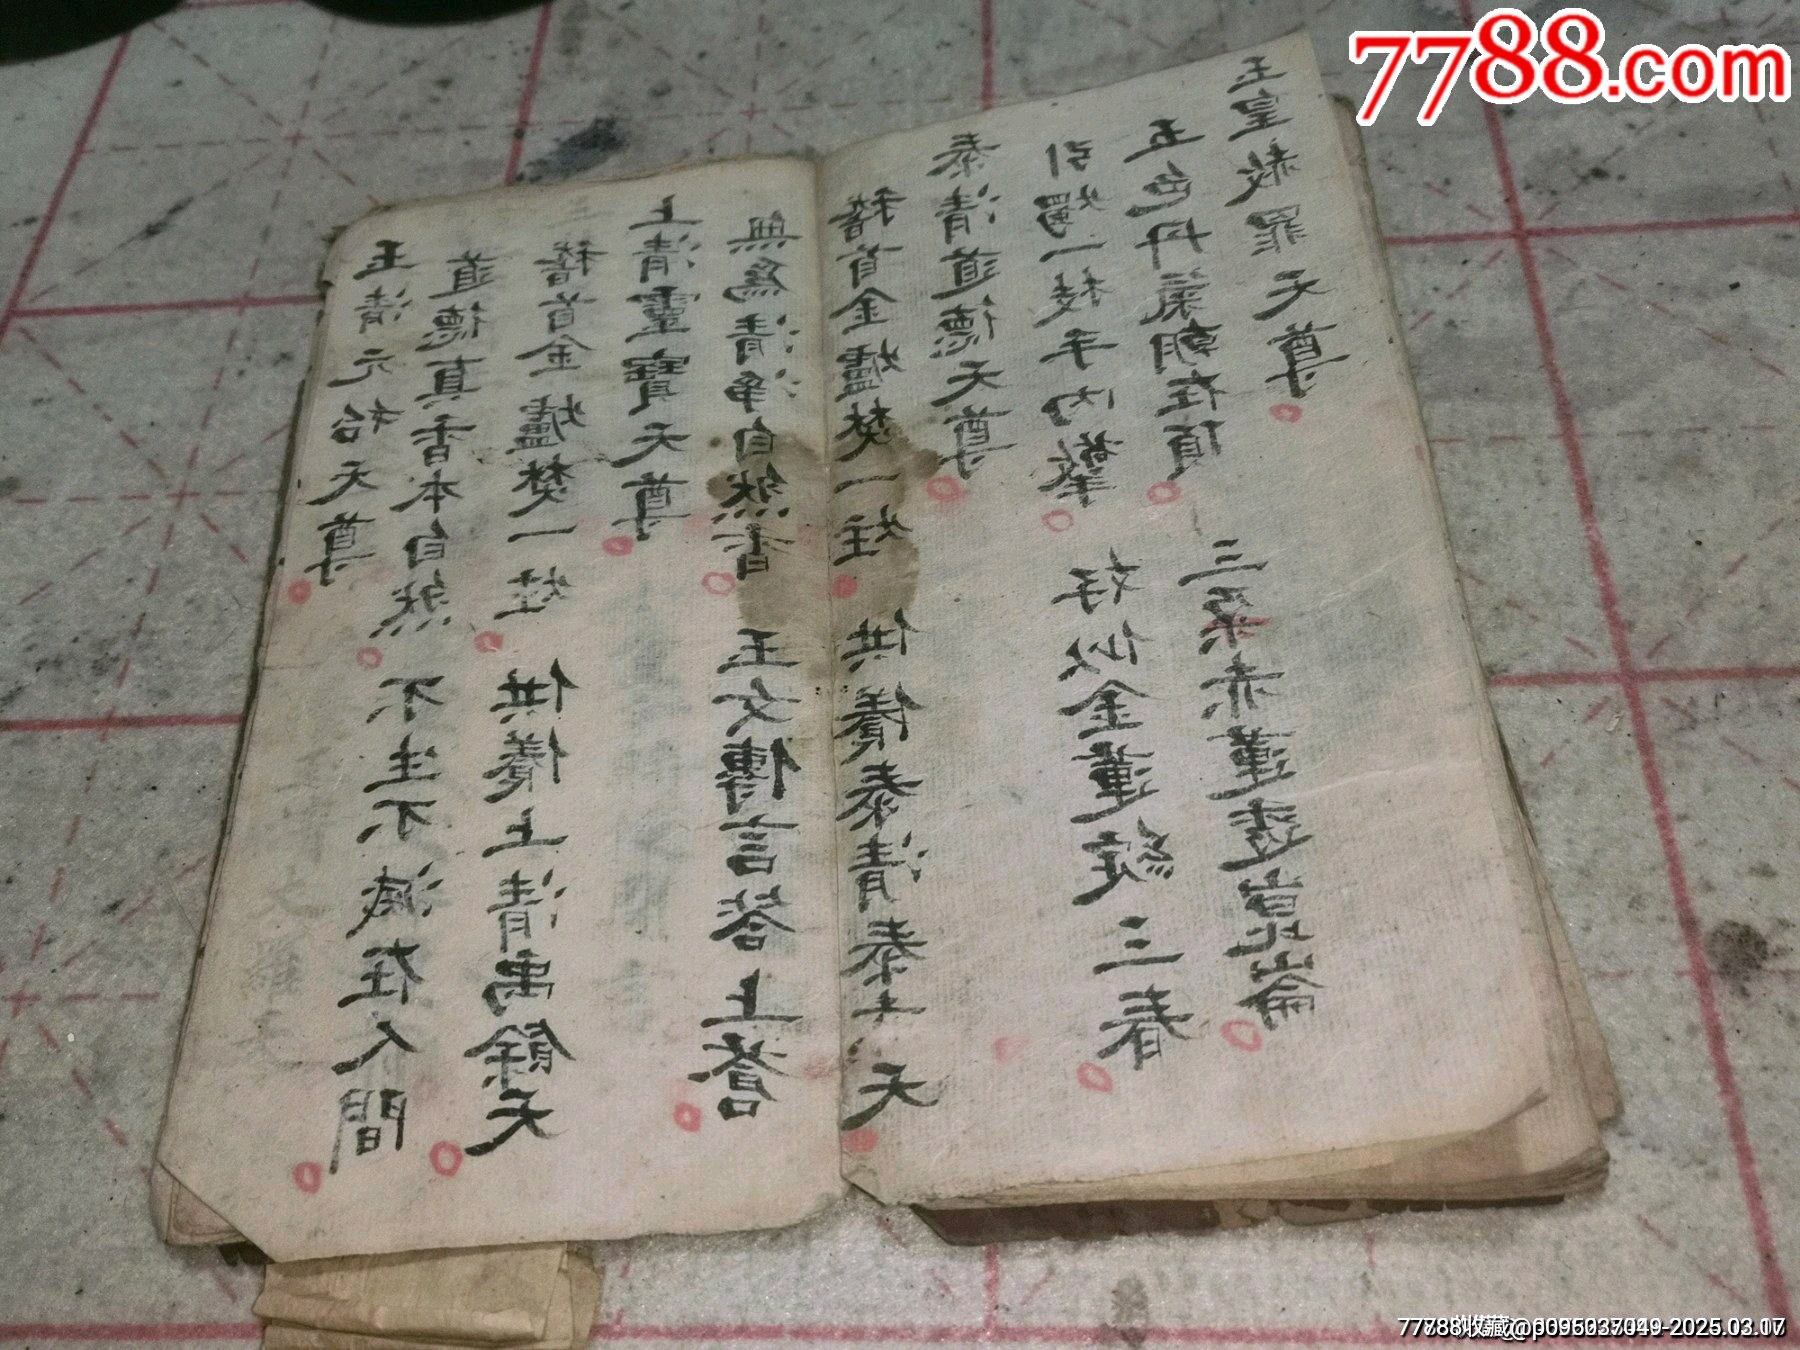 玉清元始天尊
道德真香本自然 不生不滅在人間
稽首金爐焚一炷 供儀上清禹餘天
上清靈寶天尊
無為清淨自然香 玉女傳言答上蒼
稽首金爐焚一炷 供儀泰清泰上天
泰清道德天尊
引燭一枝手內擎 好似金蓮綻三春
五色丹氣朝在頂 三朵赤蓮透崑崙
玉皇赦罪天尊
7788.com